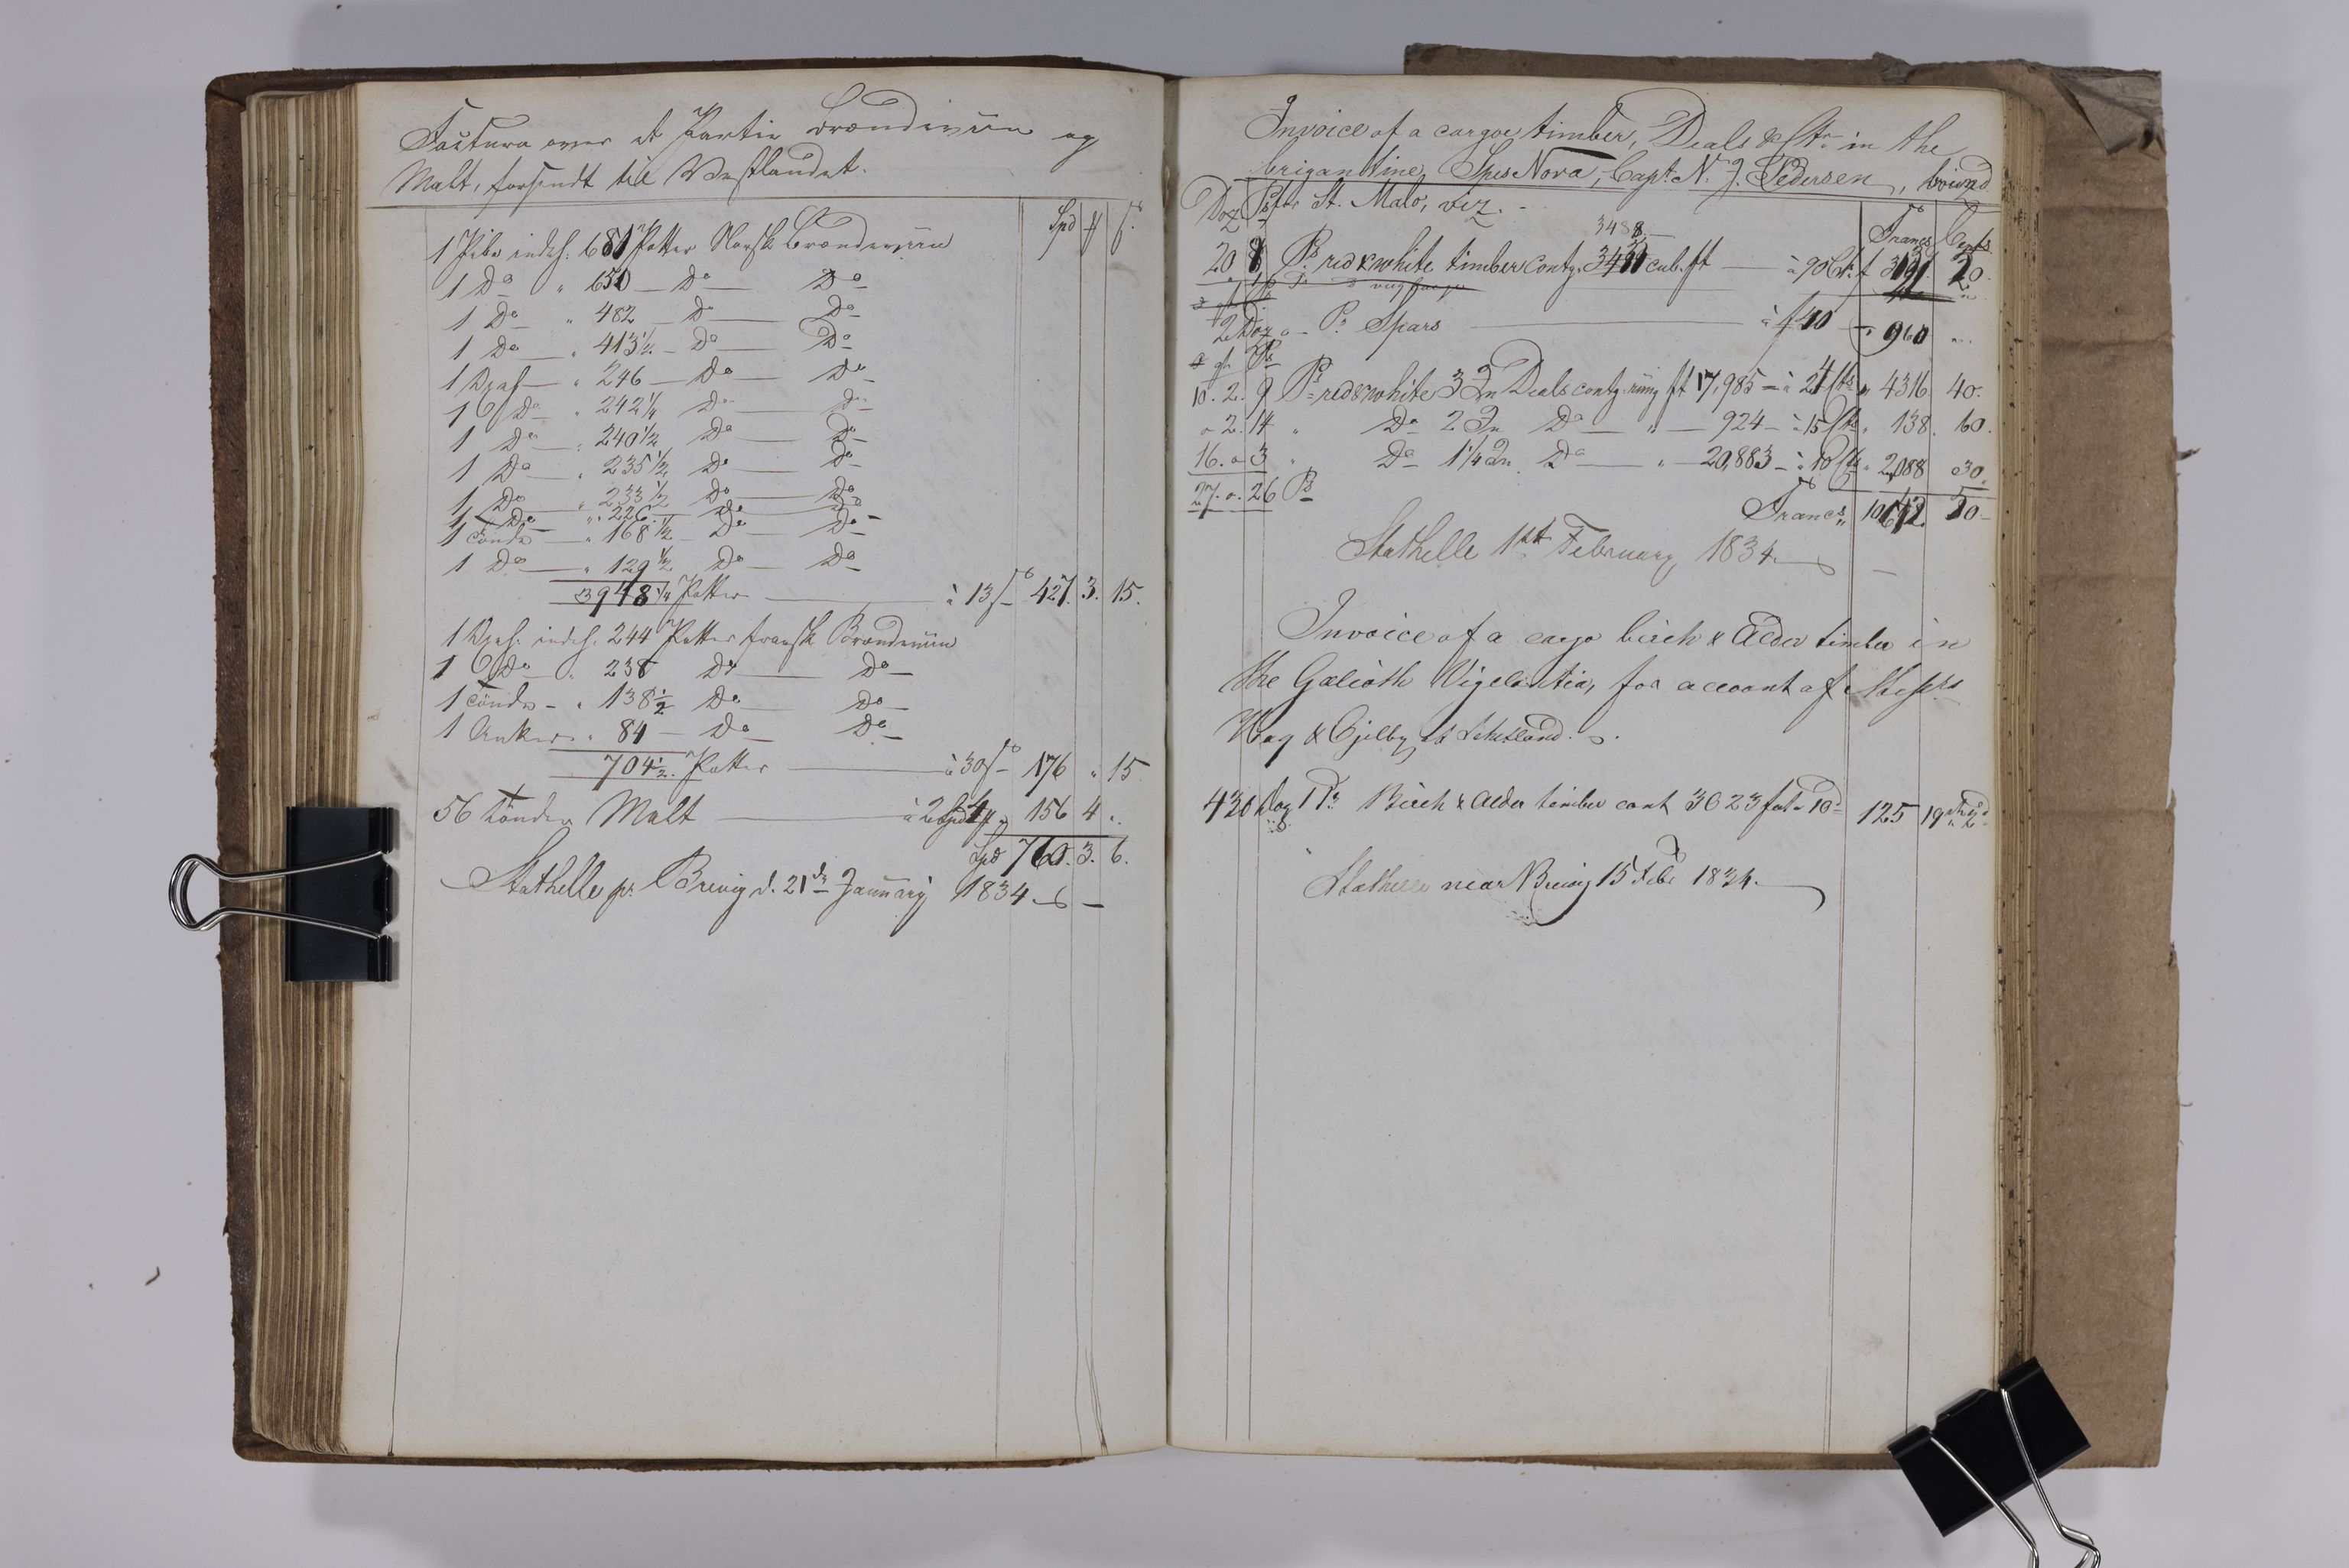 Factura over et Partie Brændeviin og
Malt, forsendt til Vestlandet.
Spd ƒ s
1 Pibe indeh. 681 Potter Norsk Brændeviin
1 Do " 650 Do Do
1 Do " 482 Do Do
1 Do " 413½ Do Do
1 Oxh " 246 Do Do
1 Do " 242¼ Do Do
1 Do " 240½ Do Do
1 Do " 235½ Do Do
1 Do " 233½ Do Do
1 Do " 226 Do Do
1 Tönde " 168½ Do Do
1 Do " 129½ Do Do
3948¼ Potter à 13 s 427. 3. 15.
1 Oxh. indeh. 244 Potter fransk Brændeviin
1 Do " 238 Do Do
1 Tönde " 138½ Do Do
1 Anker " 84 Do Do
704½ Potter à 30 s 176 " 15.
56 Tönder Malt à 2 Spd 4 " 156 4 "
Spd 760. 3. 6.
Stathelle pr. Brevig d. 21de Januarÿ 1834
Invoice of a cargoe timber, Deals &ca in the
brigantine Spes Nova, Capt. N. J. Pedersen, bound
Doz Ps for St. Malo, viz.
3488
Francs Cents
20 8 Ps red & white timber contg. cub. ft à 90 Cts f 20.
2 Doz " Ps Spars à f 40 " 960 "
qr Ps
10. 2. 9 Ps red & white 3 In Deals contg. runng ft 17,985 à 24 Cts " 4316. 40.
" 2. 14 " Do 2 In Do " 924 à 15 Cts " 138. 60.
16. " 3 " Do 1¼ In Do " 20,883 à 10 Cts " 2,088 30.
27. " 26 Ps
Francs 20
Stathelle 1st February 1834
Invoice of a cargo birch & Alder timber in
the Galioth Vigelantia, for account of Messrs
Hay & Ogilby at Schetland.
430 Doz 1 Ps Birch & Alder timber cont 3023 fot à 10d 125 19sh 2d
Stathelle near Brevig 15 Febr 1834.